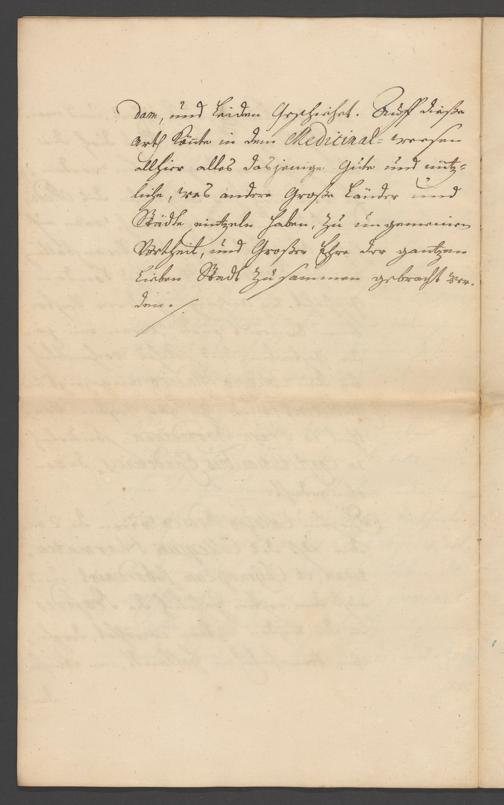 dam, und Leiden geschiehet. Auff diese
arth könte in dem Medicinal-weesen
allhier alles dasjenige Gute und nütz-
liche, was andere Große Länder und
Städte eintzeln haben, zu ungemeinen
Vortheil, und Großer Ehre der gantzen
Lieben Stadt zusammen gebracht wer-
den.